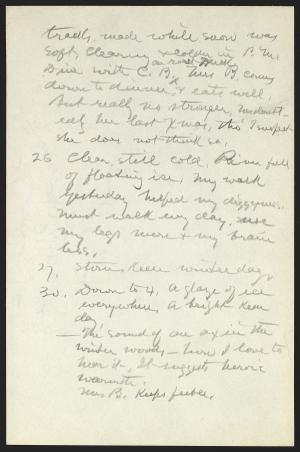 tracks made while snow was
soft. Clearing & colder in P. M.
on road
Dine with C. B. Mrs B. comes
down to dinner, & eats well.
But really no stronger, undoubt-
edly her last Xmas, tho I suspect
she does not think so.
26 Clear, still cold. River full
of floating ice. My walk
yesterday helped my dizzyness.
Must walk every day, use
my legs more & my brain
less.
27, Still keen winter days
30. Down to 4. A glaze of ice
everywhere. A bright keen
day
— The sound of an ax in the
winter woods — how I love to
hear it. It suggests heroic
warmth.
Mrs B. keeps feeble.